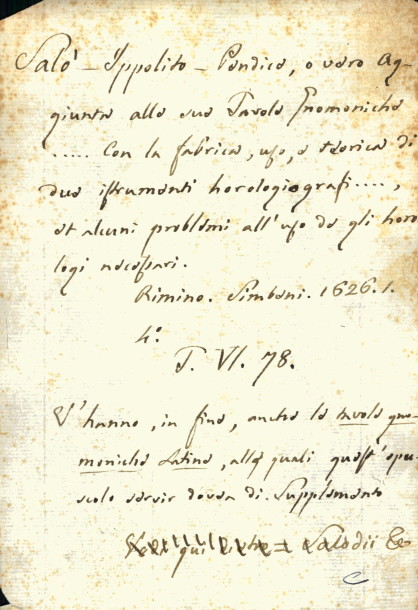 Salò – Ippolito – Pandice, o vero Ag-
giunta alle sue Tavole Gnomoniche
..... Con la fabrica, uso, e teorica di
due istrumenti horologiografi....,
et alcuni problemi all'uso de gli horo
logi necessari.
Rimino. Simbeni. 1626. 1.
4.º
T. VI. 78.
V'hanno, in fine, anche le tavole gno-
moniche Latine, alle quali quest'opu-
scolo servir dovea di Supplemento
qui = Salodii &